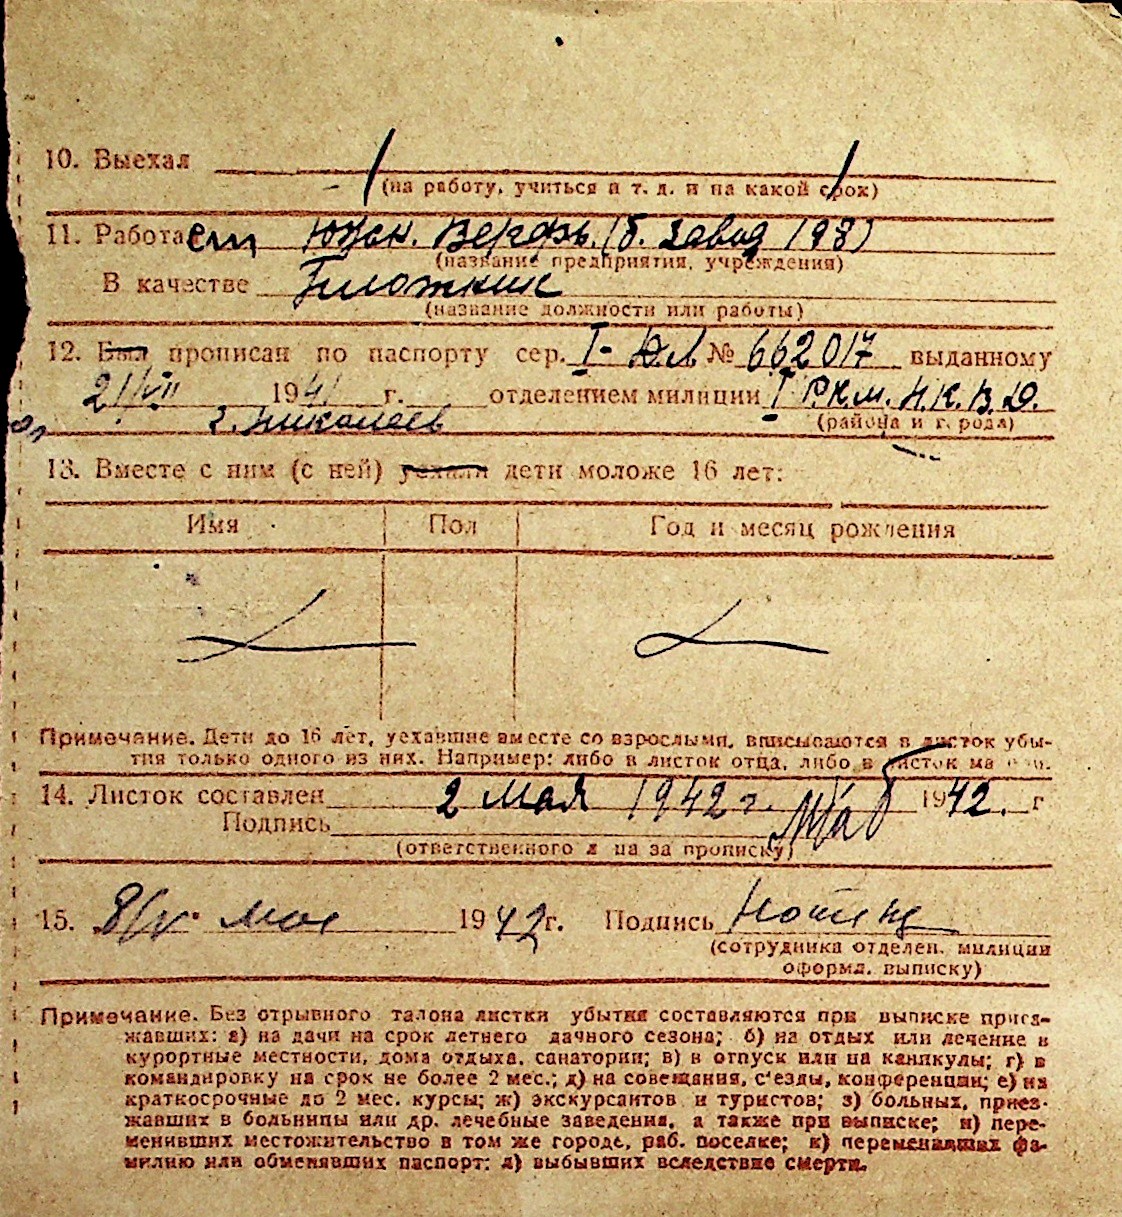 10. Выехал
(на работу, учиться и т. д. и на какой срок)
11. Работает Южн. Верфь. (б. завод 198)
(название предприятия, учреждения)
В качестве
(название должности или работы)
12. Был прописан по паспорту сер. I-ЮЛ № 662017 выданному
21/VII 1941 г. отделением милиции I Р.К.М. Н.К.В.Д.
г. Николаев (района и города)
13. Вместе с ним (с ней) уехали дети моложе 16 лет:
Имя Пол Год и месяц рождения
Примечание. Дети до 16 лет, уехавшие вместе со взрослыми, вписываются в листок убы-
тия только одного из них. Например: либо в листок отца, либо в листок матери.
14. Листок составлен 2 мая 1942 г. 1942. г
Подпись
(ответственного лица за прописку)
15. 8/V мая 1942 г. Подпись
(сотрудника отделен. милиции
оформл. выписку)
Примечание. Без отрывного талона листки убытия составляются при выписке приез-
жавших: а) на дачи на срок летнего дачного сезона; б) на отдых или лечение в
курортные местности, дома отдыха, санатории; в) в отпуск или на каникулы; г) в
командировку на срок не более 2 мес.; д) на совещания, с'езды, конференции; е) на
краткосрочные до 2 мес. курсы; ж) экскурсантов и туристов; з) больных, приез-
жавших в больницы или др. лечебные заведения, а также при выписке; и) пере-
менивших местожительство в том же городе, раб. поселке; к) переменивших фа-
милию или обменявших паспорт; л) выбывших вследствие смерти.